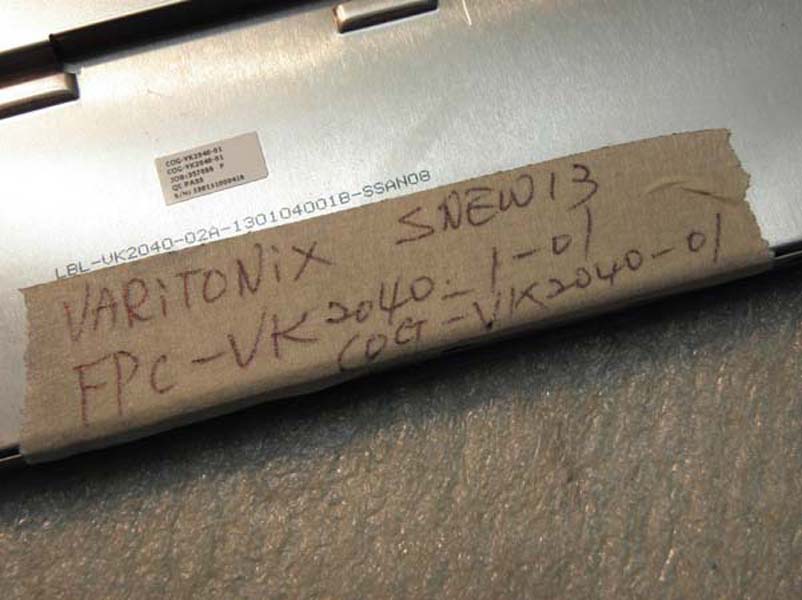 COG-VK2040-01
COG-VK2040-01
JOB:357055 P
QC PASS
S/N:130131000416
LBL-VK2040-02A-130104001B-SSAN08
VARiTONiX SNEW13
FPC-VK2040-1-01
COG-VK2040-01